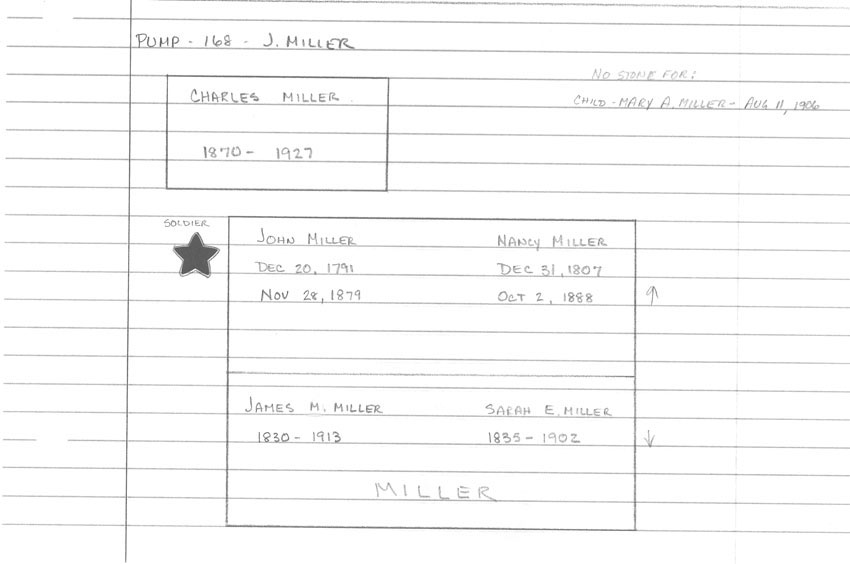 PUMP - 168 - J. MILLER
NO STONE FOR:
CHILD - MARY A. MILLER - AUG 11, 1906
CHARLES MILLER
1870 - 1927
SOLDIER
JOHN MILLER NANCY MILLER
DEC 20, 1791 DEC 31, 1807
NOV 28, 1879 OCT 2, 1888
JAMES M. MILLER SARAH E. MILLER
1830 - 1913 1835 - 1902
MILLER